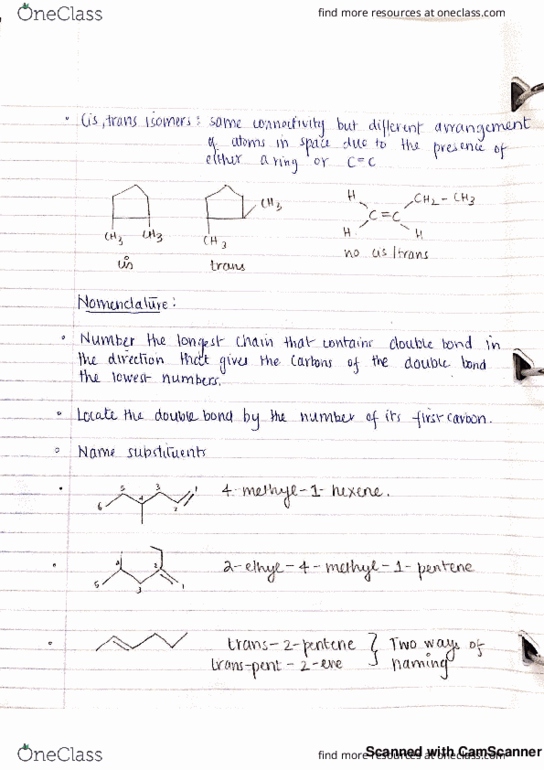 OneClass
find more resources at oneclass.com
• Cis, trans isomers: same connectivity but different arrangement
of atoms in space due to the presence of
either a ring or C=C
CH3 CH3
cis
CH3
CH3
trans
H CH2-CH3
C=C
H H
no cis/trans
Nomenclature:
• Number the longest chain that contains double bond in
the direction that gives the carbons of the double bond
the lowest numbers.
• Locate the double bond by the number of its first carbon.
• Name substituents
• 6 5 4 3 2 1 4-methyl-1-hexene.
• 5 4 3 2 1 2-ethyl-4-methyl-1-pentene
• trans-2-pentene } Two ways of
trans-pent-2-ene naming
Scanned with CamScanner
OneClass
find more resources at oneclass.com